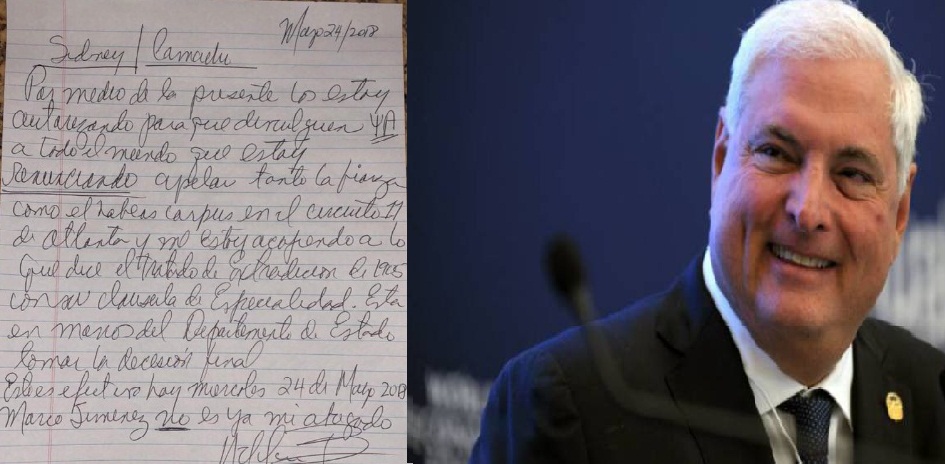 Mayo 24/2018
Sidney / Camacho
Por medio de la presente los estoy
autorizando para que divulguen YA
a todo el mundo que estoy
renunciando apelar tanto la fianza
como el habeas corpus en el circuito 11
de atlanta y me estoy acogiendo a lo
que dice el tratado de Extradicion de 1905
con su clausula de Especialidad. Esta
en manos del Departamento de Estado
tomar la decesion final
Este es efectivo hoy miercoles 24 de Mayo 2018
Marco Jimenez no es ya mi abogado